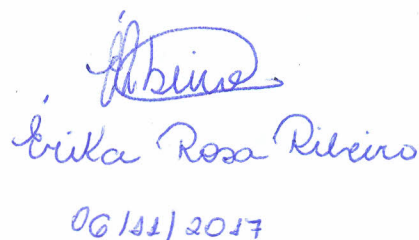 Érika Rosa Ribeiro
06/11/2017